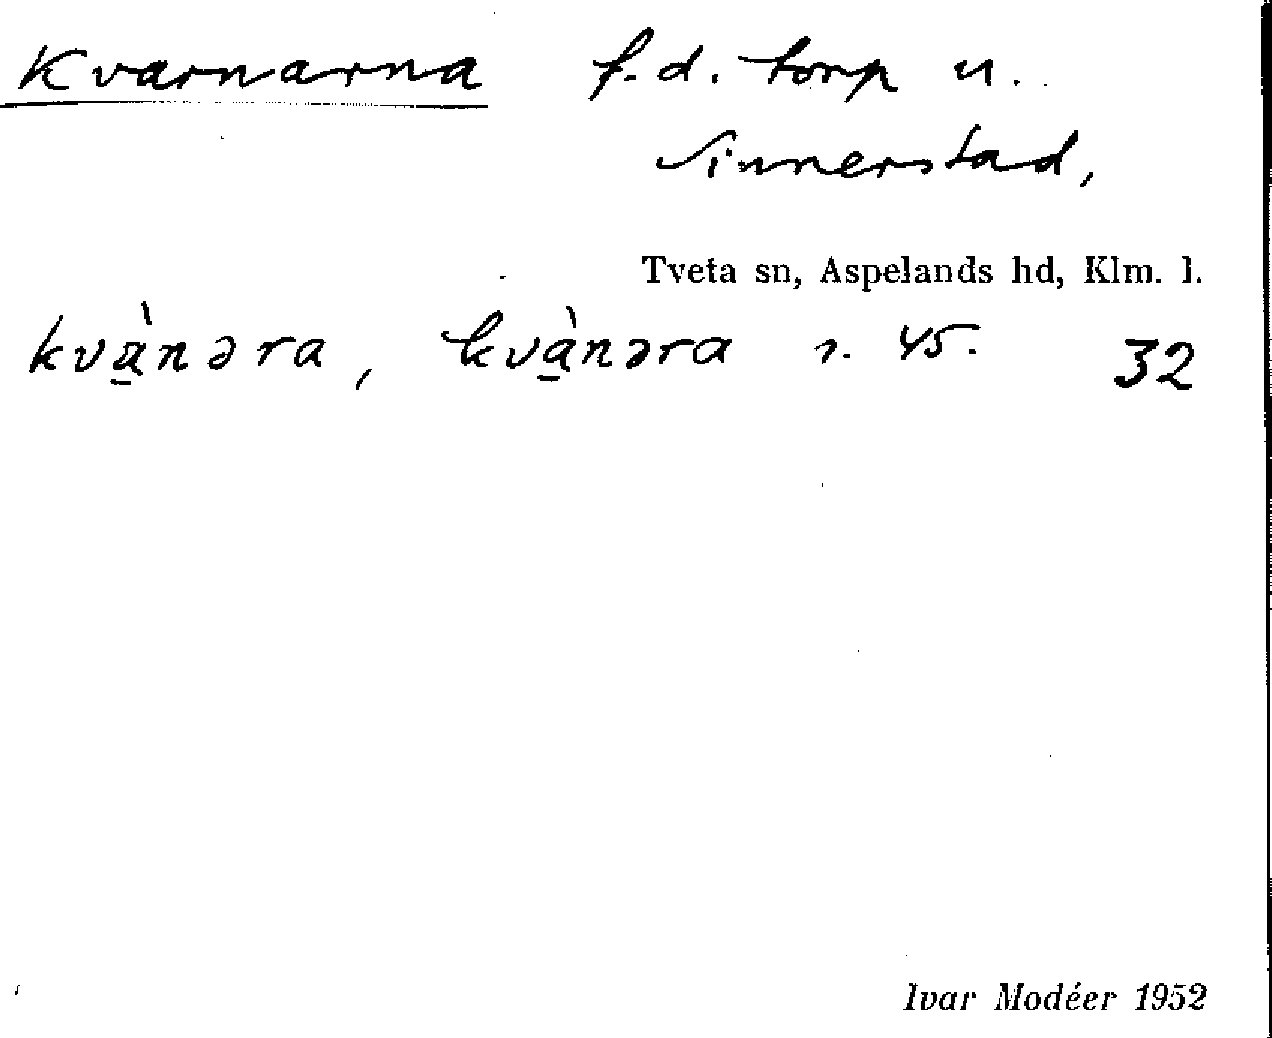 Kvarnarna f.d. torp u.
Sinnerstad,
Tveta sn, Aspelands hd, Klm. l.
kvà̱nəra, kvà̱nəra s. 45. 32
Ivar Modéer 1952